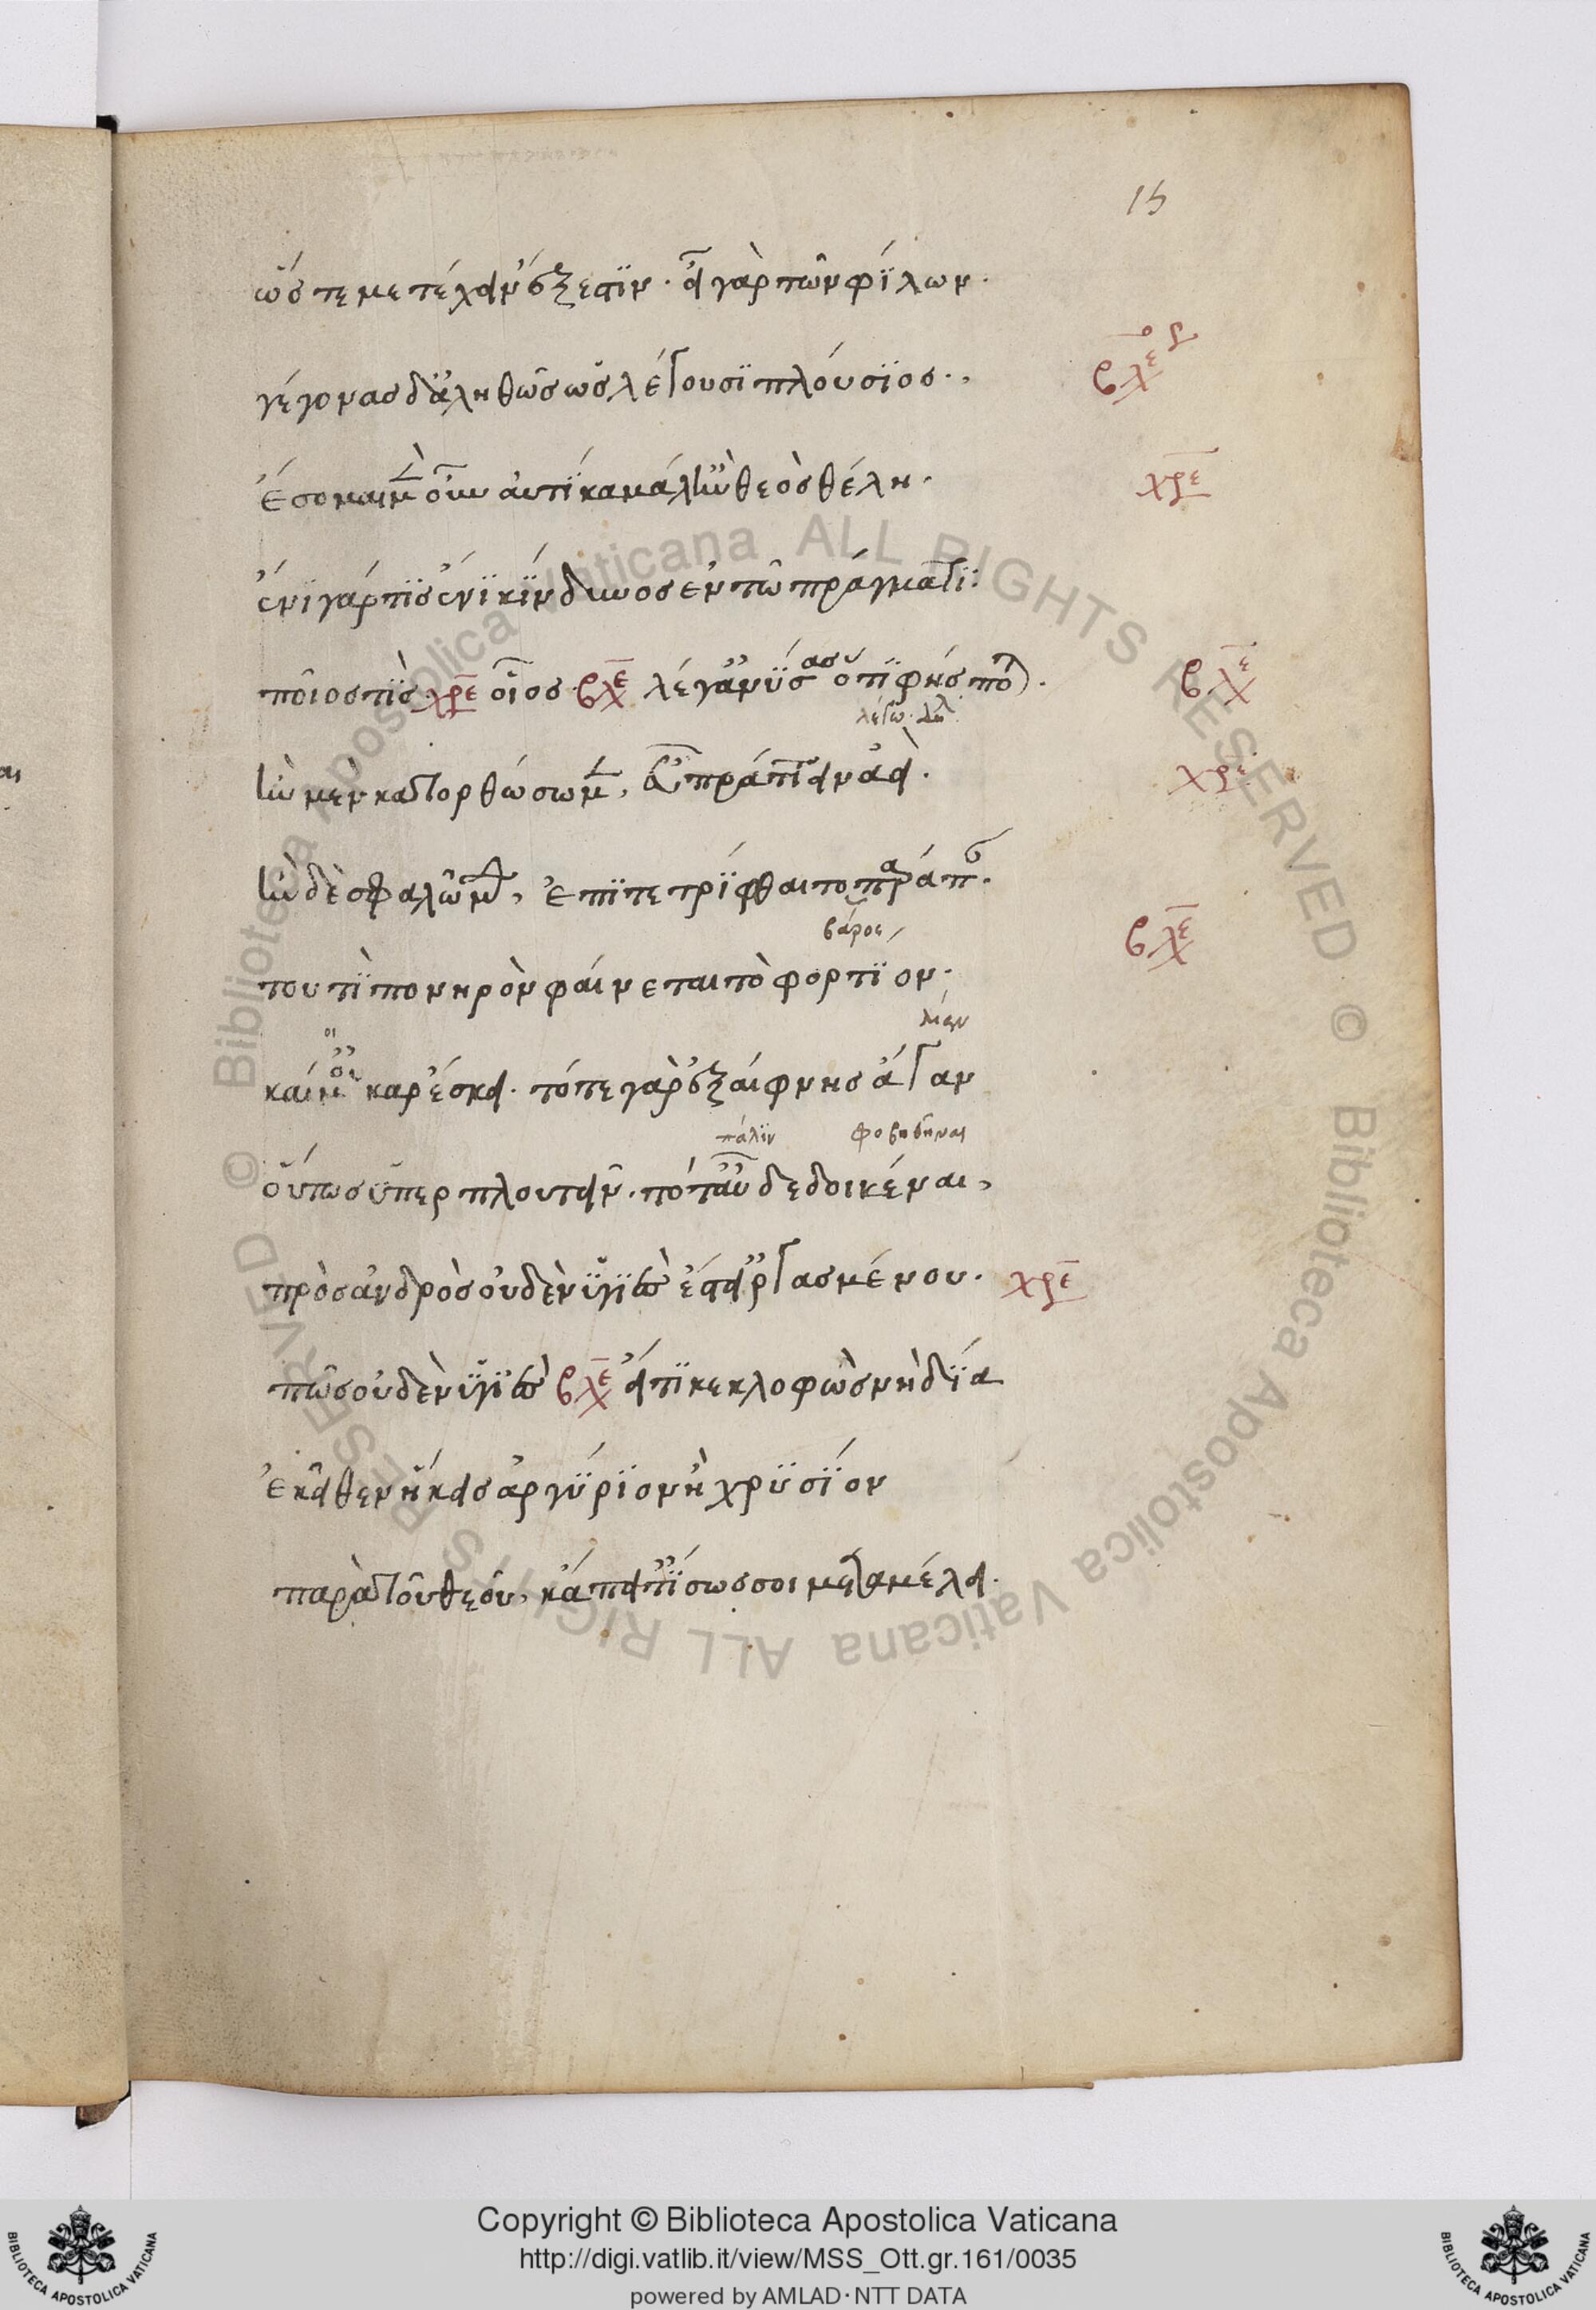 15
ὥστε μετέχειν ἔξεστιν· εἶ γὰρ τῶν φίλων·
γέγονας δ' ἀληθῶς ὡς λέγουσι πλούσιος·
ἔσομαι μὲν οὖν αὐτίκα μάλ' ἢν θεὸς θέλη· χρε
ἔνι γάρ τις ἔνι κίνδυνος ἐν τῶ πράγματι:
ποῖός τις χρε οἷος βλε λέγ' ἀνύσας ὅτι φής ποτε· βλε
ἢν μὲν κατορθώσωμεν, εὖ πράττειν ἀεί· χρε
ἢν δὲ σφαλῶμεν, ἐπιτετρίφθαι τοπαράπαν·
βάρος
τουτὶ πονηρὸν φαίνεται τὸ φορτίον· βλε
λίαν
καί μ' οὐκ ἀρέσκει· τό τε γὰρ ἐξαίφνης ἄγαν
πάλιν φοβηθῆναι
οὕτως ὑπερπλουτεῖν· τό τ' αὖ δεδοικέναι,
πρὸς ἀνδρὸς οὐδὲν ὑγιές ἐστ' εἰργασμένου· χρε
πῶς οὐδὲν ὑγιές βλε εἴ τι κεκλοφὼς νὴ δία
ἐκεῖθεν ἥκεις ἀργύριον ἢ χρυσίον
παρὰ τοῦ θεοῦ, κἄπειτ' ἴσως σοι μεταμέλει·
Copyright © Biblioteca Apostolica Vaticana
http://digi.vatlib.it/view/MSS_Ott.gr.161/0035
powered by AMLAD·NTT DATA
BIBLIOTECA APOSTOLICA VATICANA
BIBLIOTECA APOSTOLICA VATICANA
© Biblioteca Apostolica Vaticana ALL RIGHTS RESERVED © Biblioteca Apostolica Vaticana ALL RIGHTS RESERVED